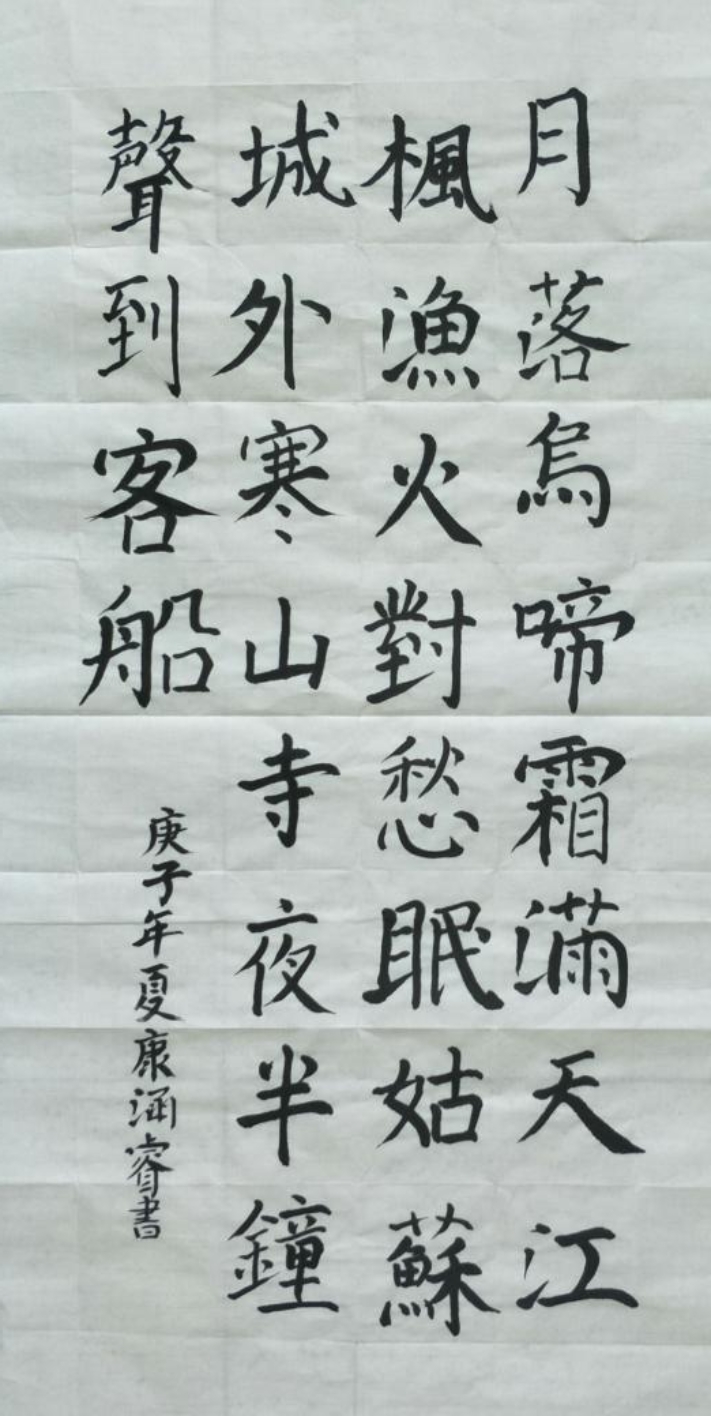 月落烏啼霜滿天江
楓漁火對愁眠姑蘇
城外寒山寺夜半鐘
聲到客船
庚子年夏康涵睿書